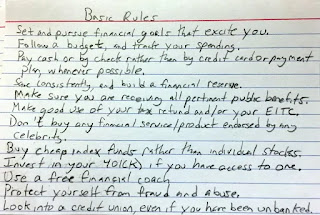 Basic Rules
Set and pursue financial goals that excite you.
Follow a budget, and track your spending.
Pay cash or by check rather than by credit card or payment
plan, whenever possible.
Save consistently, and build a financial reserve.
Make sure you are receiving all pertinent public benefits.
Make good use of your tax refund and/or your EITC.
Don't buy any financial service/product endorsed by any
celebrity.
Buy cheap index funds rather than individual stocks.
Invest in your 401(k), if you have access to one.
Use a free financial coach.
Protect yourself from fraud and abuse.
Look into a credit union, even if you have been unbanked.